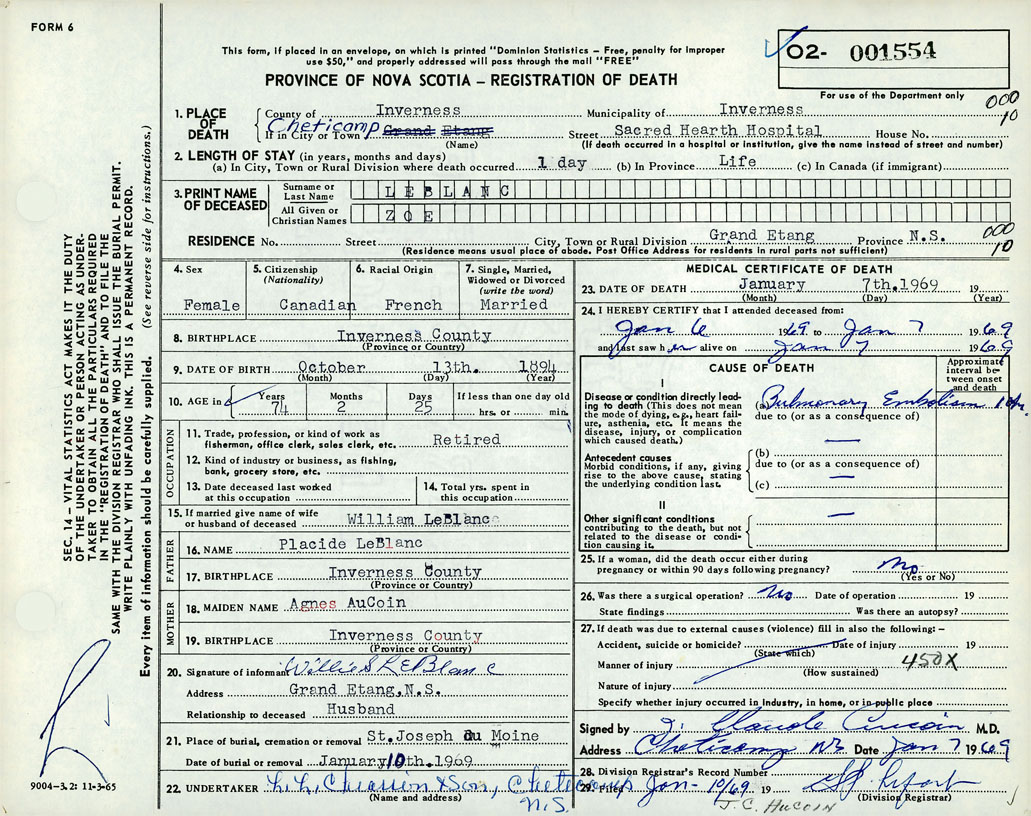 FORM 6
This form, if placed in an envelope, on which is printed "Dominion Statistics – Free, penalty for improper
use $50," and properly addressed will pass through the mail "FREE"
PROVINCE OF NOVA SCOTIA – REGISTRATION OF DEATH
02- 001554
For use of the Department only
000
10
1. PLACE OF DEATH
County of Inverness Municipality of Inverness
If in City or Town Cheticamp Grand Etang Street Sacred Hearth Hospital House No.
(Name) (If death occurred in a hospital or institution, give the name instead of street and number)
2. LENGTH OF STAY (in years, months and days)
(a) In City, Town or Rural Division where death occurred 1 day (b) In Province Life (c) In Canada (if immigrant)
3. PRINT NAME OF DECEASED
Surname or Last Name LEBLANC
All Given or Christian Names ZOE
RESIDENCE No. Street City, Town or Rural Division Grand Etang Province N.S. 000
10
(Residence means usual place of abode. Post Office Address for residents in rural parts not sufficient)
4. Sex Female
5. Citizenship (Nationality) Canadian
6. Racial Origin French
7. Single, Married, Widowed or Divorced (write the word) Married
8. BIRTHPLACE Inverness County
(Province or Country)
9. DATE OF BIRTH October 13th. 1894
(Month) (Day) (Year)
10. AGE in Years 74 Months 2 Days 25 If less than one day old
hrs. or min.
OCCUPATION
11. Trade, profession, or kind of work as
fisherman, office clerk, sales clerk, etc. Retired
12. Kind of industry or business, as fishing,
bank, grocery store, etc.
13. Date deceased last worked
at this occupation
14. Total yrs. spent in
this occupation
15. If married give name of wife
or husband of deceased William LeBlanc
FATHER
16. NAME Placide LeBlanc
17. BIRTHPLACE Inverness County
(Province or Country)
MOTHER
18. MAIDEN NAME Agnes AuCoin
19. BIRTHPLACE Inverness County
(Province or Country)
20. Signature of informant Willie S LEBlanc
Address Grand Etang, N.S.
Relationship to deceased Husband
21. Place of burial, cremation or removal St. Joseph du Moine
Date of burial or removal January 10th. 1969
22. UNDERTAKER Chiasson & Son, Cheticamp
(Name and address) N.S.
MEDICAL CERTIFICATE OF DEATH
23. DATE OF DEATH January 7th. 1969 19
(Month) (Day) (Year)
24. I HEREBY CERTIFY that I attended deceased from:
Jan 6 1969 to Jan 7 1969
and last saw her alive on Jan 7 1969
CAUSE OF DEATH
Approximate interval between onset and death
I
Disease or condition directly leading to death (This does not
mean the mode of dying, e.g., heart failure, asthenia, etc. It means the
disease, injury, or complication
which caused death.)
(a) Pulmonary Embolism
due to (or as a consequence of)
Antecedent causes
Morbid conditions, if any, giving
rise to the above cause, stating
the underlying condition last.
(b)
due to (or as a consequence of)
(c)
II
Other significant conditions
contributing to the death, but not
related to the disease or condition causing it.
25. If a woman, did the death occur either during
pregnancy or within 90 days following pregnancy? No
(Yes or No)
26. Was there a surgical operation? No Date of operation 19
State findings Was there an autopsy?
27. If death was due to external causes (violence) fill in also the following: –
Accident, suicide or homicide? Date of injury 19
(State which)
Manner of injury 450X
(How sustained)
Nature of injury
Specify whether injury occurred in industry, in home, or in public place
Signed by J. Claude Aucoin M.D.
Address Cheticamp NS Date Jan 7 1969
28. Division Registrar's Record Number
29. Filed Jan - 10/69 19
(Division Registrar)
J.C. AuCOIN
SEC. 14 – VITAL STATISTICS ACT MAKES IT THE DUTY
OF THE UNDERTAKER OR PERSON ACTING AS UNDERTAKER TO OBTAIN ALL THE PARTICULARS REQUIRED
IN THE "REGISTRATION OF DEATH" AND TO FILE THE
SAME WITH THE DIVISION REGISTRAR WHO SHALL ISSUE THE BURIAL PERMIT.
WRITE PLAINLY WITH UNFADING INK. THIS IS A PERMANENT RECORD.
Every item of information should be carefully supplied. (See reverse side for instructions.)
9004-3.2: 11-3-65